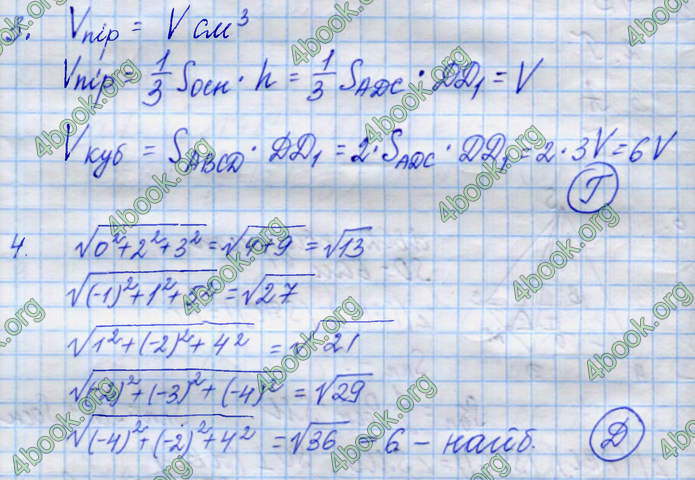 3. Vпір = V см³
Vпір = 1/3 Sосн · h = 1/3 S_ADC · DD₁ = V
Vкуб = S_ABCD · DD₁ = 2 · S_ADC · DD₁ = 2 · 3V = 6V
Г
4. √(0²+2²+3²) = √(4+9) = √13
√((-1)²+1²+5²) = √27
√(1²+(-2)²+4²) = √21
√((-2)²+(-3)²+(-4)²) = √29
√((-4)²+(-2)²+4²) = √36 = 6 – найб. Д
4book.org